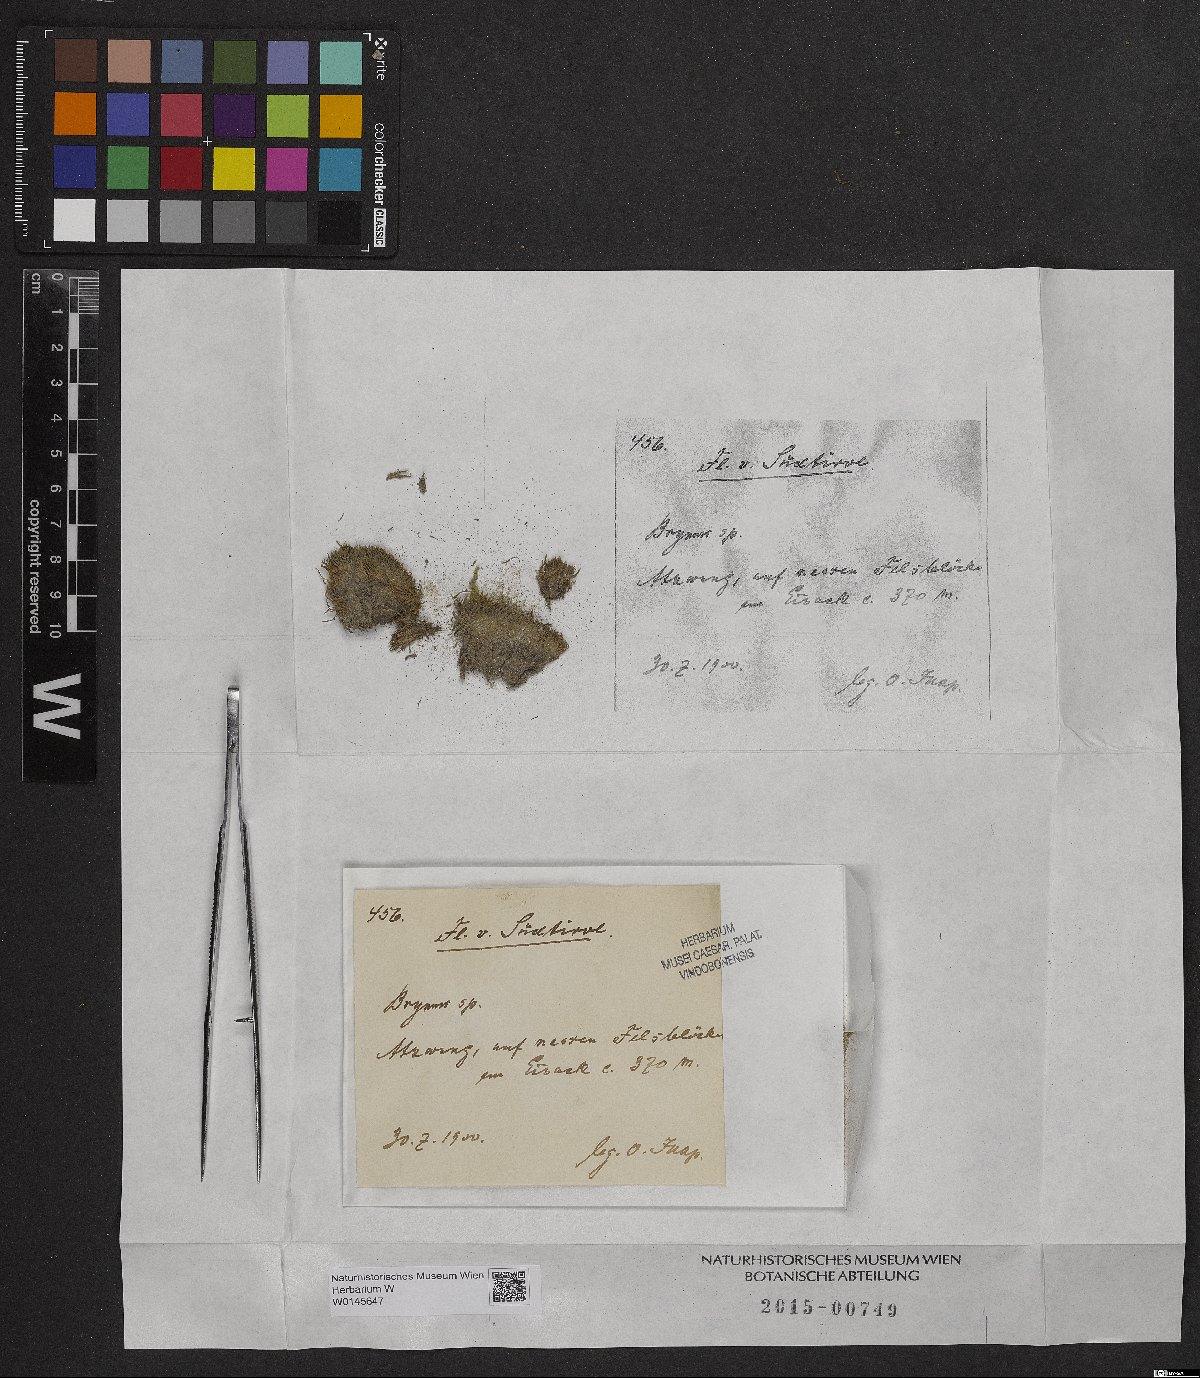 colorchecker CLASSIC
cm
0 1 2 3 4 5 6 7 8 9 10
copyright reserved
W
456.
Fl. v. Südtirol
Bryum sp.
Atzwang, auf nassen Felsblöcken
am Eisack c. 370 m.
30.7.1900.
leg. O.
456.
Fl. v. Südtirol.
HERBARIUM
MUSEI CAESAR. PALAT.
VINDOBONENSIS
Bryum sp.
Atzwang, auf nassen Felsblöcken
am Eisack c. 370 m.
30.7.1900.
leg. O.
Naturhistorisches Museum Wien
Herbarium W
W0145647
NATURHISTORISCHES MUSEUM WIEN
BOTANISCHE ABTEILUNG
2015-00749